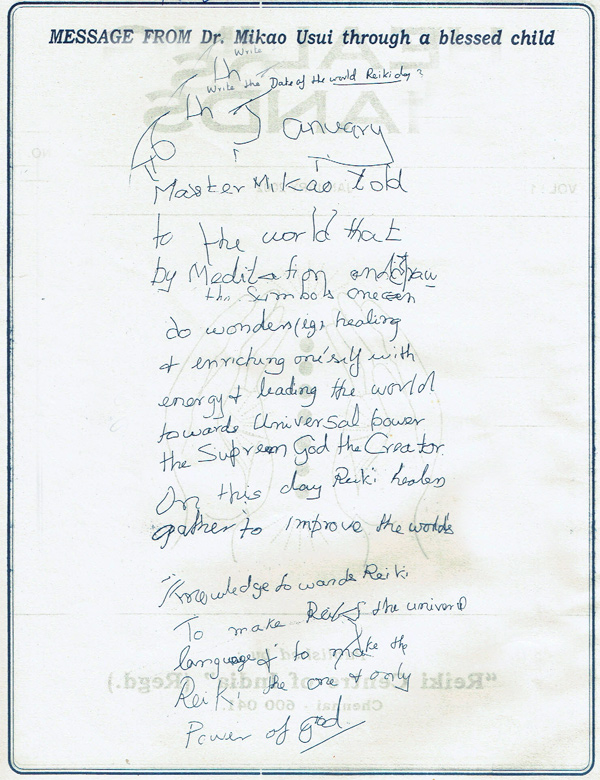 MESSAGE FROM Dr. Mikao Usui through a blessed child
Write
th
Write the Date of the world Reiki day ?
th January
Master Mikao told
to the world that
by Meditation and draw
the Symbols one can
do wonders (eg) healing
& enriching oneself with
energy & leading the world
towards Universal power
the Supreem God the Creator.
On this day Reiki healers
gather to improve the worlds
Knowledge towards Reiki
To make Reiki the universal
language & to make the
Reiki the one & only
Power of god
HEALING
HANDS
VOL : 1
JANUARY
NO
Published by
"Reiki Centre of India" (Regd.)
Chennai - 600 041.